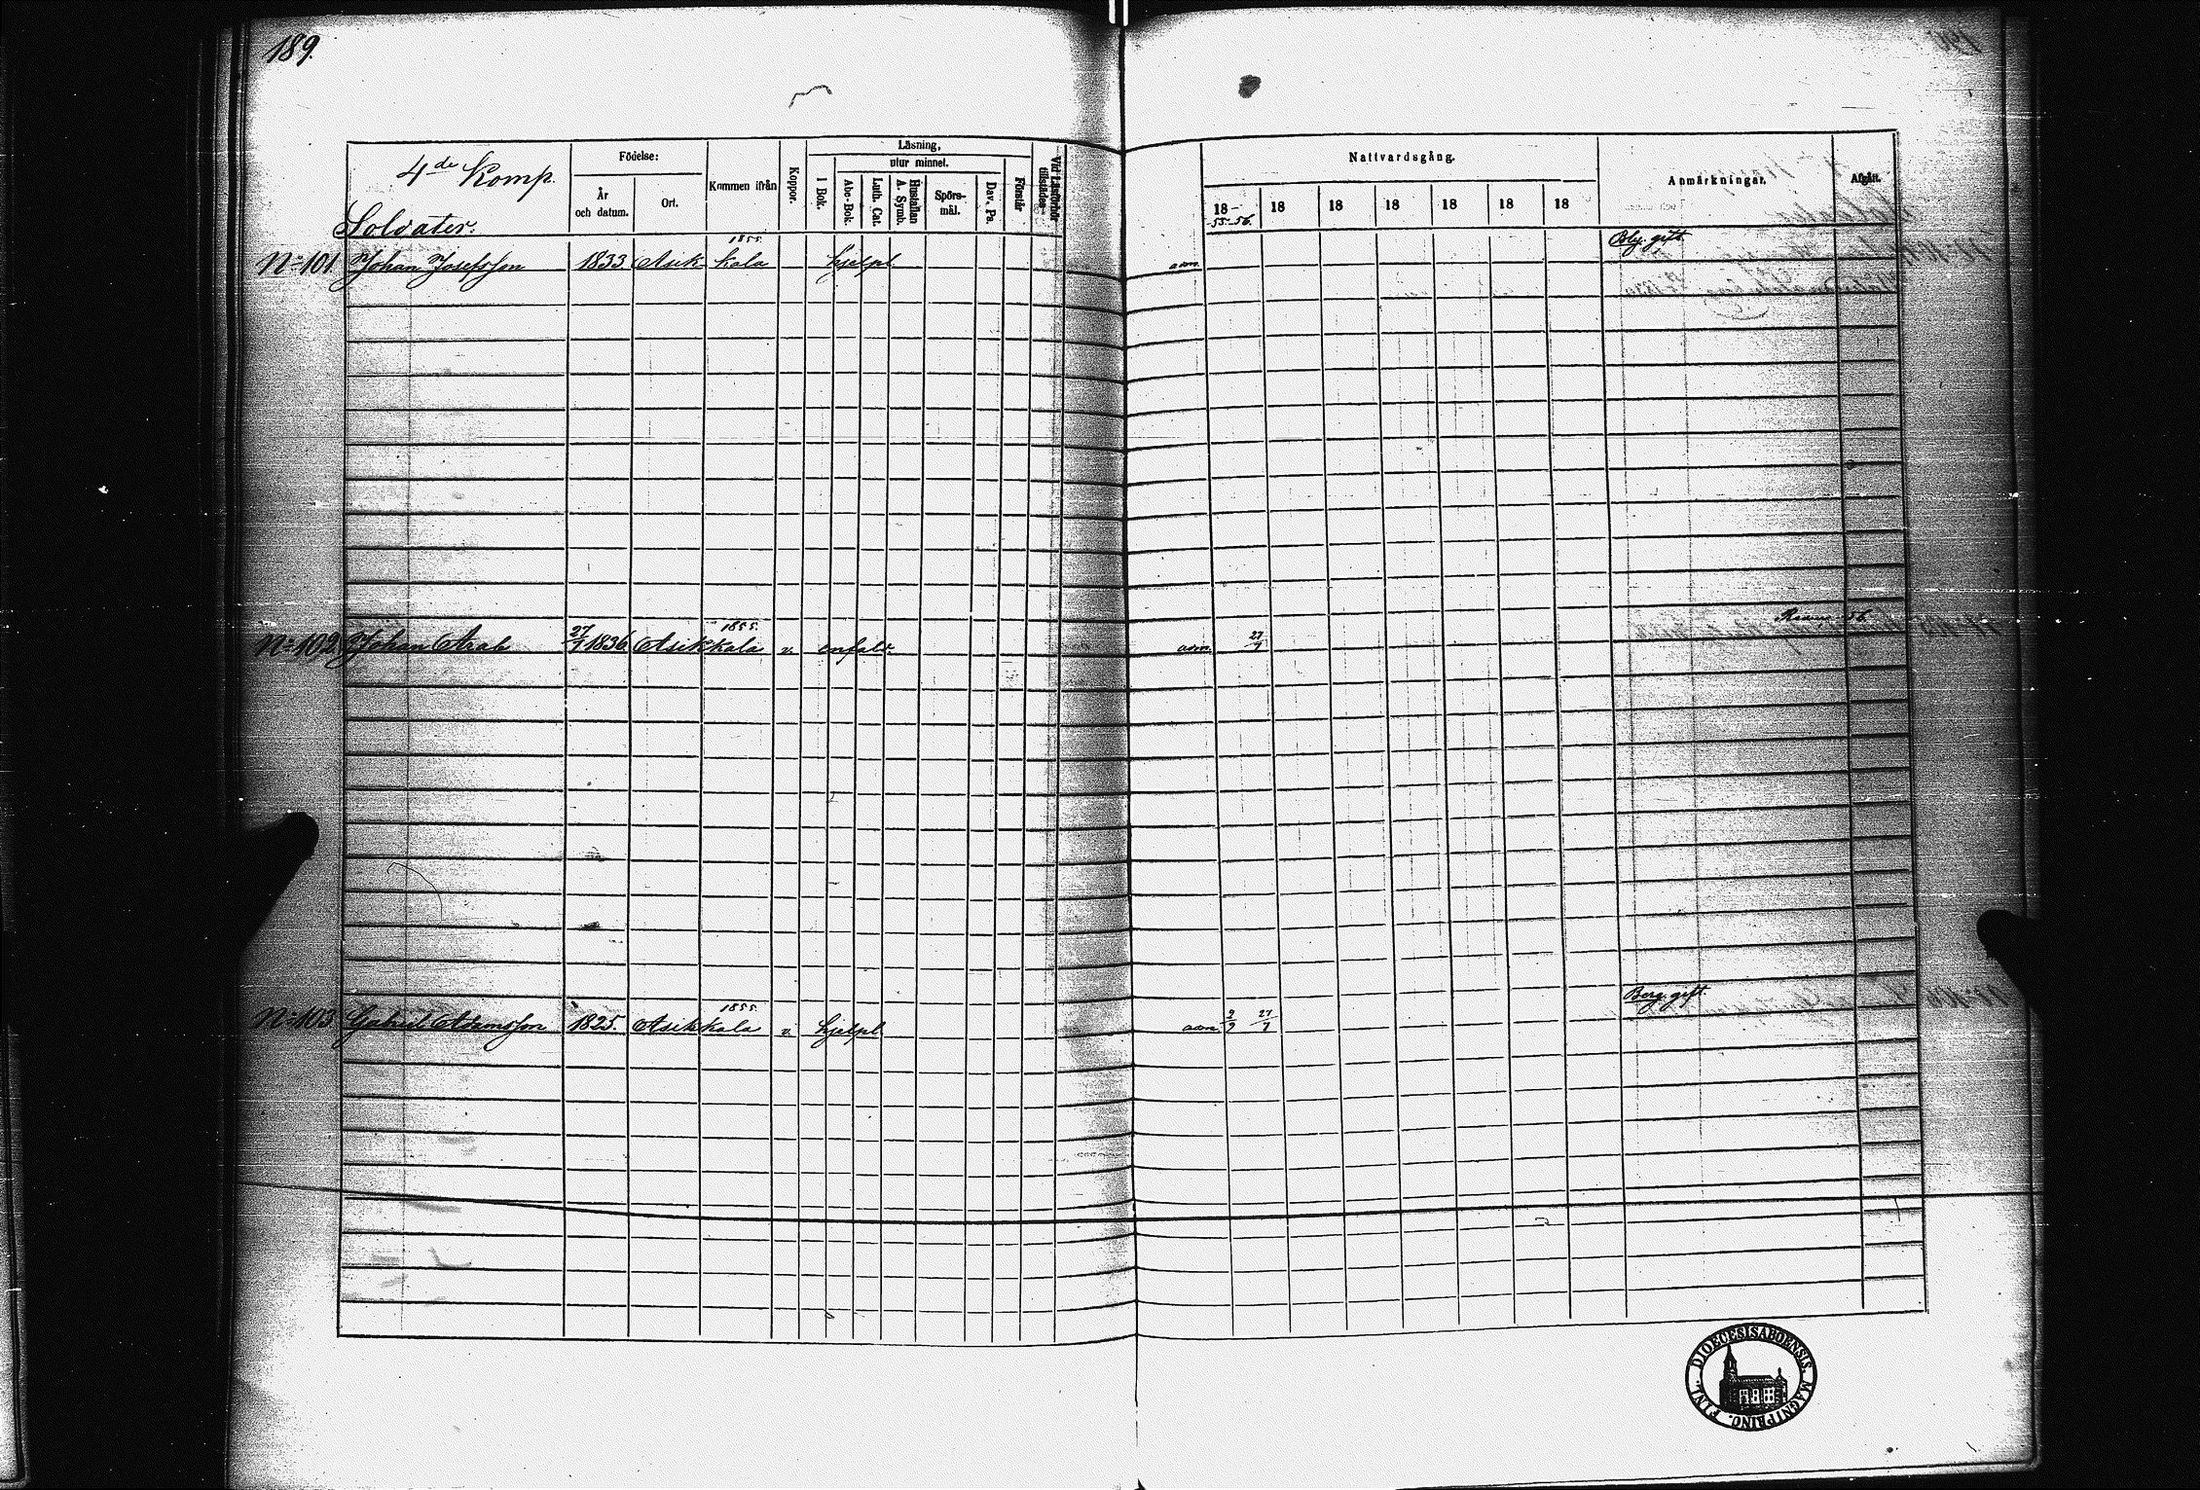 189.
4de Komp.
Soldater.
Födelse:
År
och datum.
Ort.
Kommen ifrån
Koppor.
Läsning,
utur minnet.
I Bok.
Abc-Bok.
Luth. Cat.
Hustaflan
A. Symb.
Spörs-
mål.
Dav. Ps.
Förstår
Vid Läsförhör
tillstädes
Nattvardsgång.
18 18 18 18 18 18 18
55. 56.
Anmärkningar.
Afgått.
1855.
No 101. Johan Josefsson 1833 Asikkala hjelpl. adm. gift
1855.
No 102. Johan Arab 27/7 1836 Asikkala v. enfald. adm. 27/7 56.
1855.
No 103 Gabriel Adamsson 1825. Asikkala v. hjelpl. adm. 2/9 27/7 Berg. gift.
DIOECESIS ABOENSIS. MAGNI PRINC. FINL.